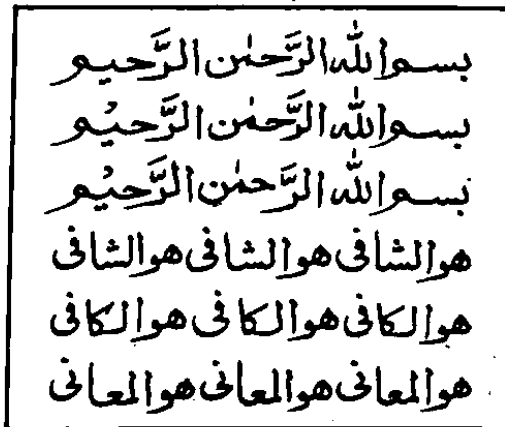 بسم الله الرَّحمٰن الرَّحيم
بسم الله الرَّحمٰن الرَّحيْم
بسم الله الرَّحمٰن الرَّحيْم
هو الشافی هو الشافی هو الشافی
هو الکافی هو الکافی هو الکافی
هو المعانی هو المعانی هو المعانی